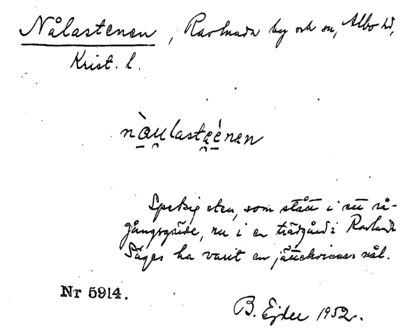 Nålastenen, Ravlunda by och sn, Albo hd,
Krist. l.
nàu̯lasteé̯nen
Spetsig sten, som stått i ett rå-
gångsgärde, nu i en trädgård i Ravlunda
Säges ha varit en jättekvinnas nål.
Nr 5914.
B. Ejder 1952.